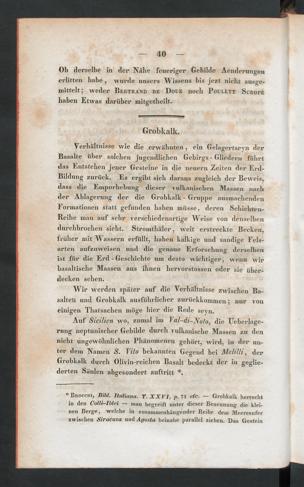 — 40 —
Ob derselbe in der Nähe feueriger Gebilde Aenderungen
erlitten habe, wurde unsers Wissens bis jezt nicht ausge-
mittelt; weder BERTRAND DE DOUE noch POULETT SCROPE
haben Etwas darüber mitgetheilt.
Grobkalk.
Verhältnisse wie die erwähnten, ein Gelagertseyn der
Basalte über solchen jugendlichen Gebirgs-Gliedern führt
das Entstehen jener Gesteine in die neuern Zeiten der Erd-
Bildung zurück. Es ergibt sich daraus zugleich der Beweis,
dass die Emporhebung dieser vulkanischen Massen nach
der Ablagerung der die Grobkalk-Gruppe ausmachenden
Formationen statt gefunden haben müsse, deren Schichten-
Reihe man auf sehr verschiedenartige Weise von denselben
durchbrochen sieht. Stromthäler, weit erstreckte Becken,
früher mit Wassern erfüllt, haben kalkige und sandige Fels-
arten aufzuweisen und die genaue Erforschung derselben
ist für die Erd-Geschichte um desto wichtiger, wenn wir
basaltische Massen aus ihnen hervorstossen oder sie über-
decken sehen.
Wir werden später auf die Verhältnisse zwischen Ba-
salten und Grobkalk ausführlicher zurückkommen; nur von
einigen Thatsachen möge hier die Rede seyn.
Auf Sicilien wo, zumal im Val-di-Noto, die Ueberlage-
rung neptunischer Gebilde durch vulkanische Massen zu den
nicht ungewöhnlichen Phänomenen gehört, wird, in der un-
ter dem Namen S. Vito bekannten Gegend bei Melilli, der
Grobkalk durch Olivin-reichen Basalt bedeckt der in geglie-
derten Säulen abgesondert auftritt *.
* BROCCHI, Bibl. Italiana. T. XXVI, p. 71 etc. — Grobkalk herrscht
in den Colli-Iblei — man begreift unter dieser Benennung die klei-
nen Berge, welche in zusammenhängender Reihe dem Meeresufer
zwischen Siracusa und Agosta beinahe parallel ziehen. Das Gestein